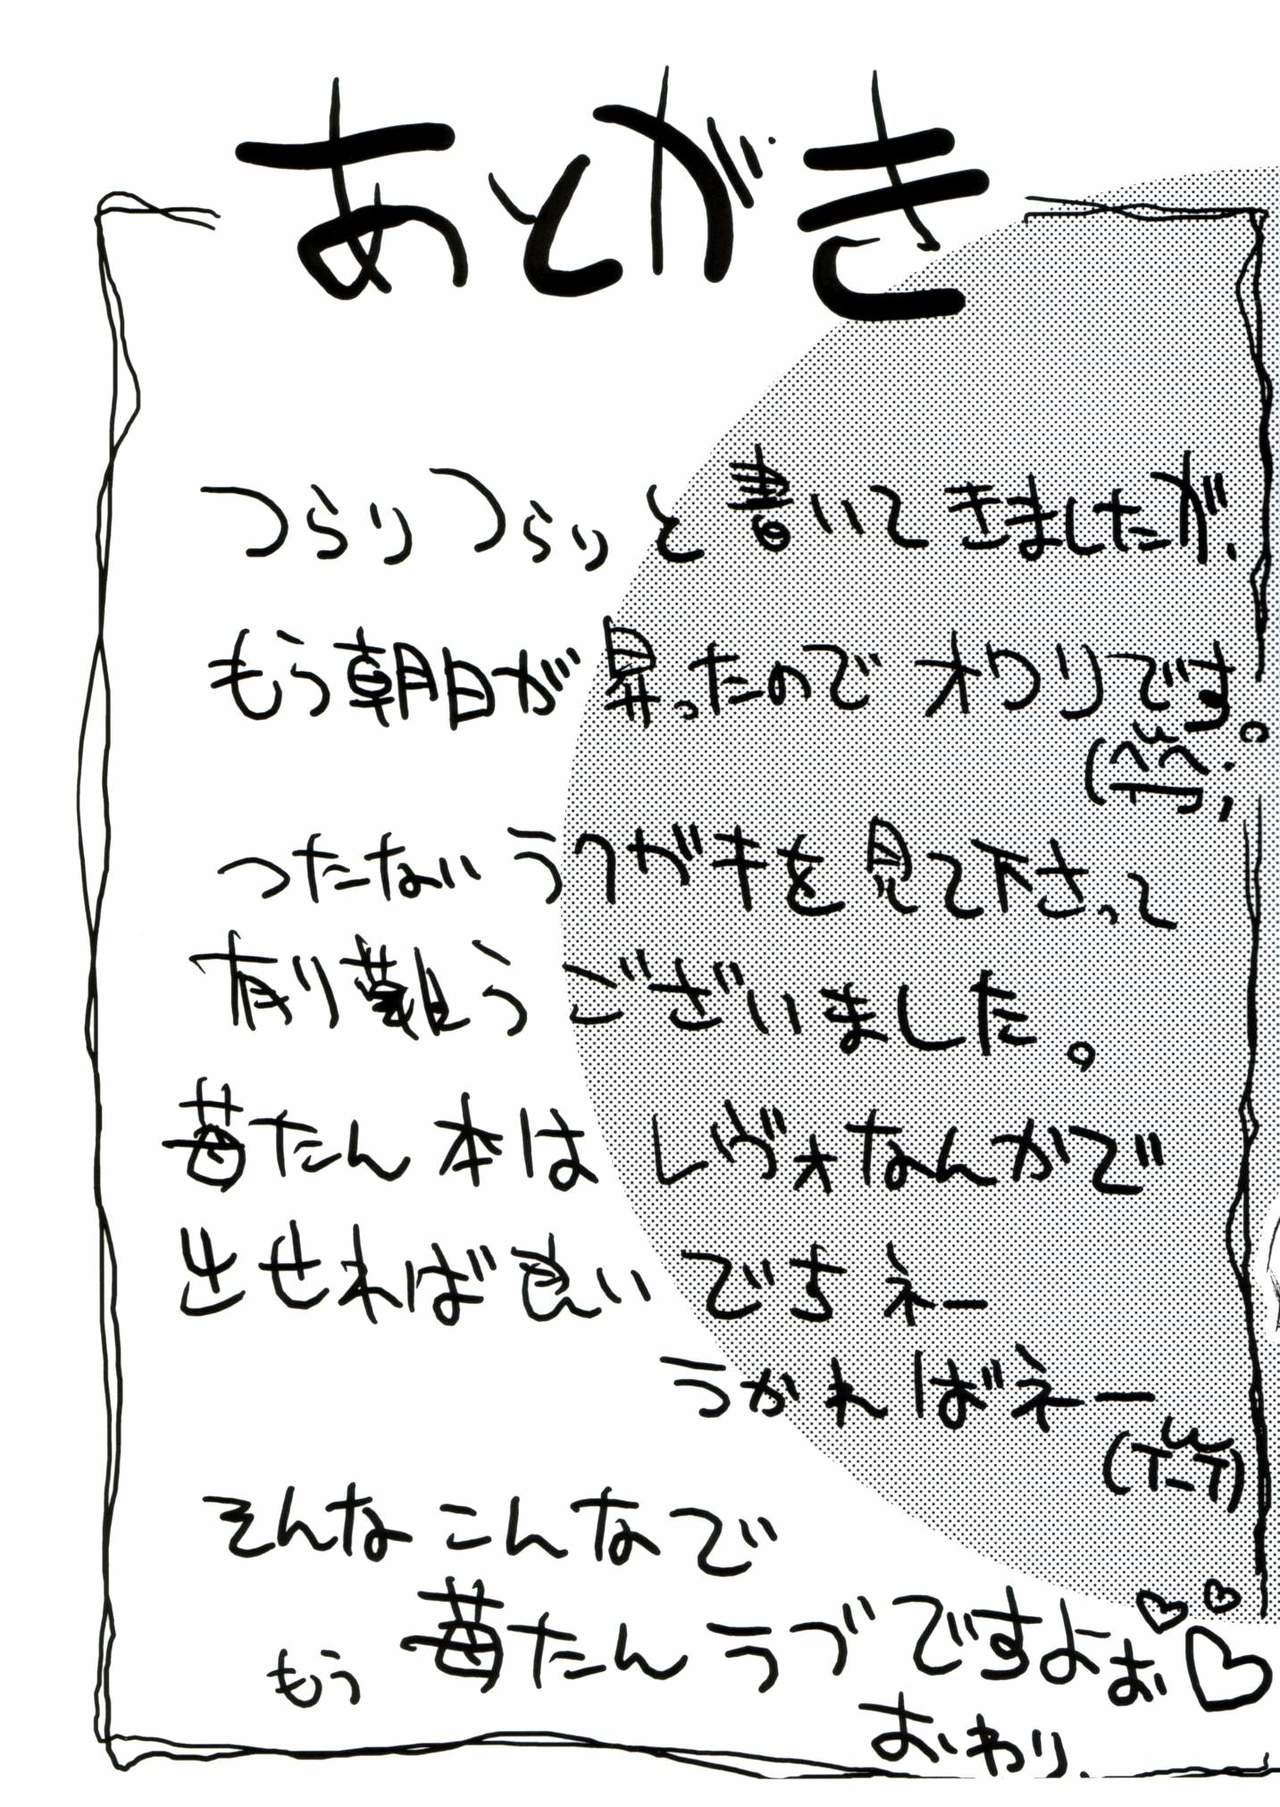 あとがき
つらりつらりと書いてきましたが、
もう朝日が昇ったのでオワリです。
つたないラクガキを見て下さって
有り難うございました。
苺たん本はレヴォなんかで
出せれば良いでちネー
うかればネー
そんなこんなで
もう 苺たんラブですよぉ♡
おわり.